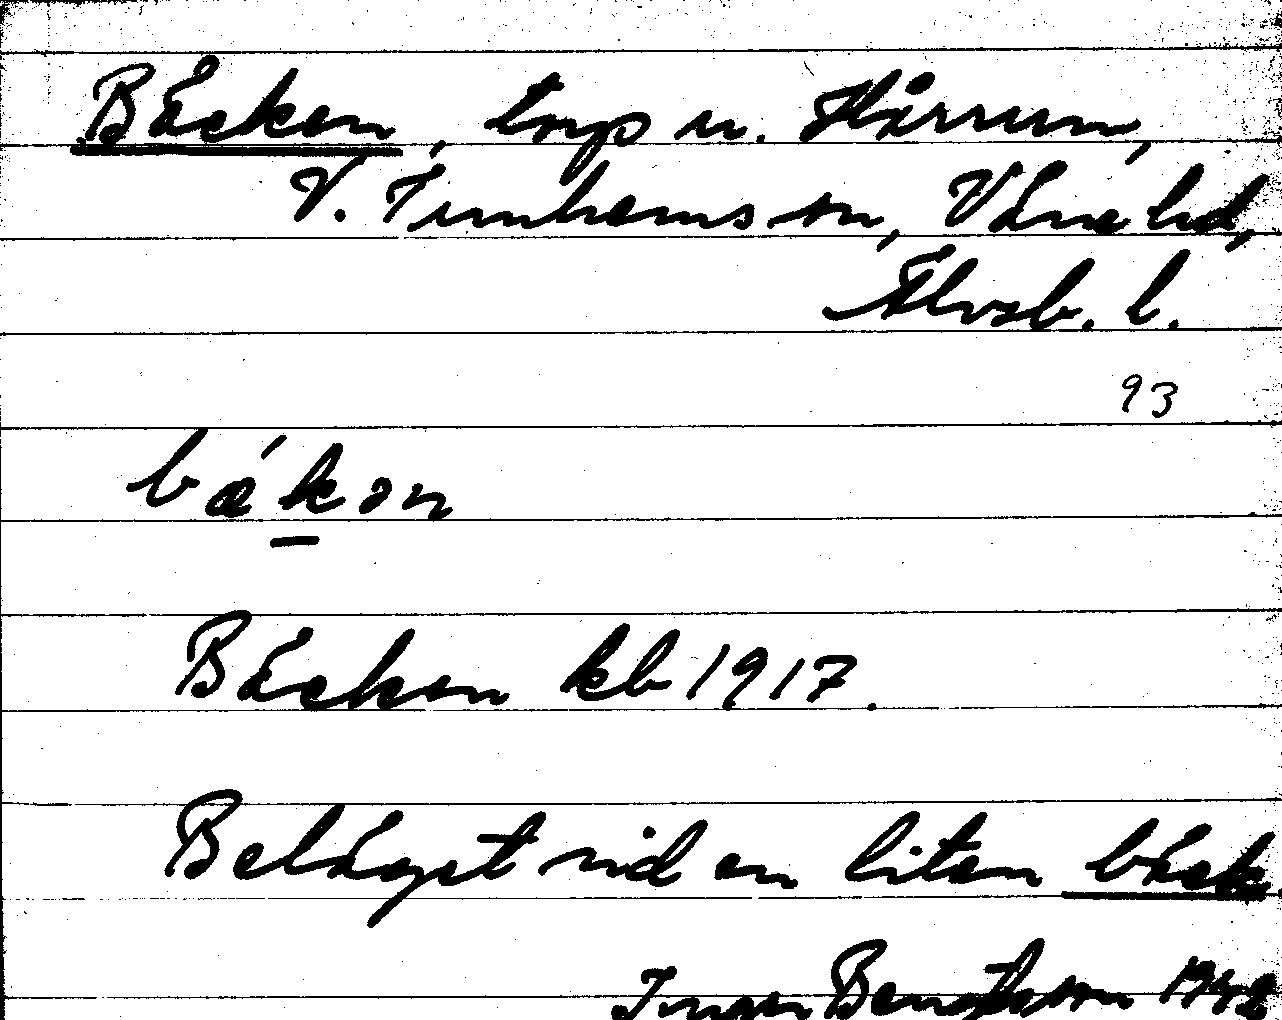 Bäcken, torp u. Hårrum,
V. Tunhems sn, Väne hd,
Älvsb. l.
93
bǽkən
Bäcken kb 1917.
Beläget vid en liten bäck
Bengtsson 1942